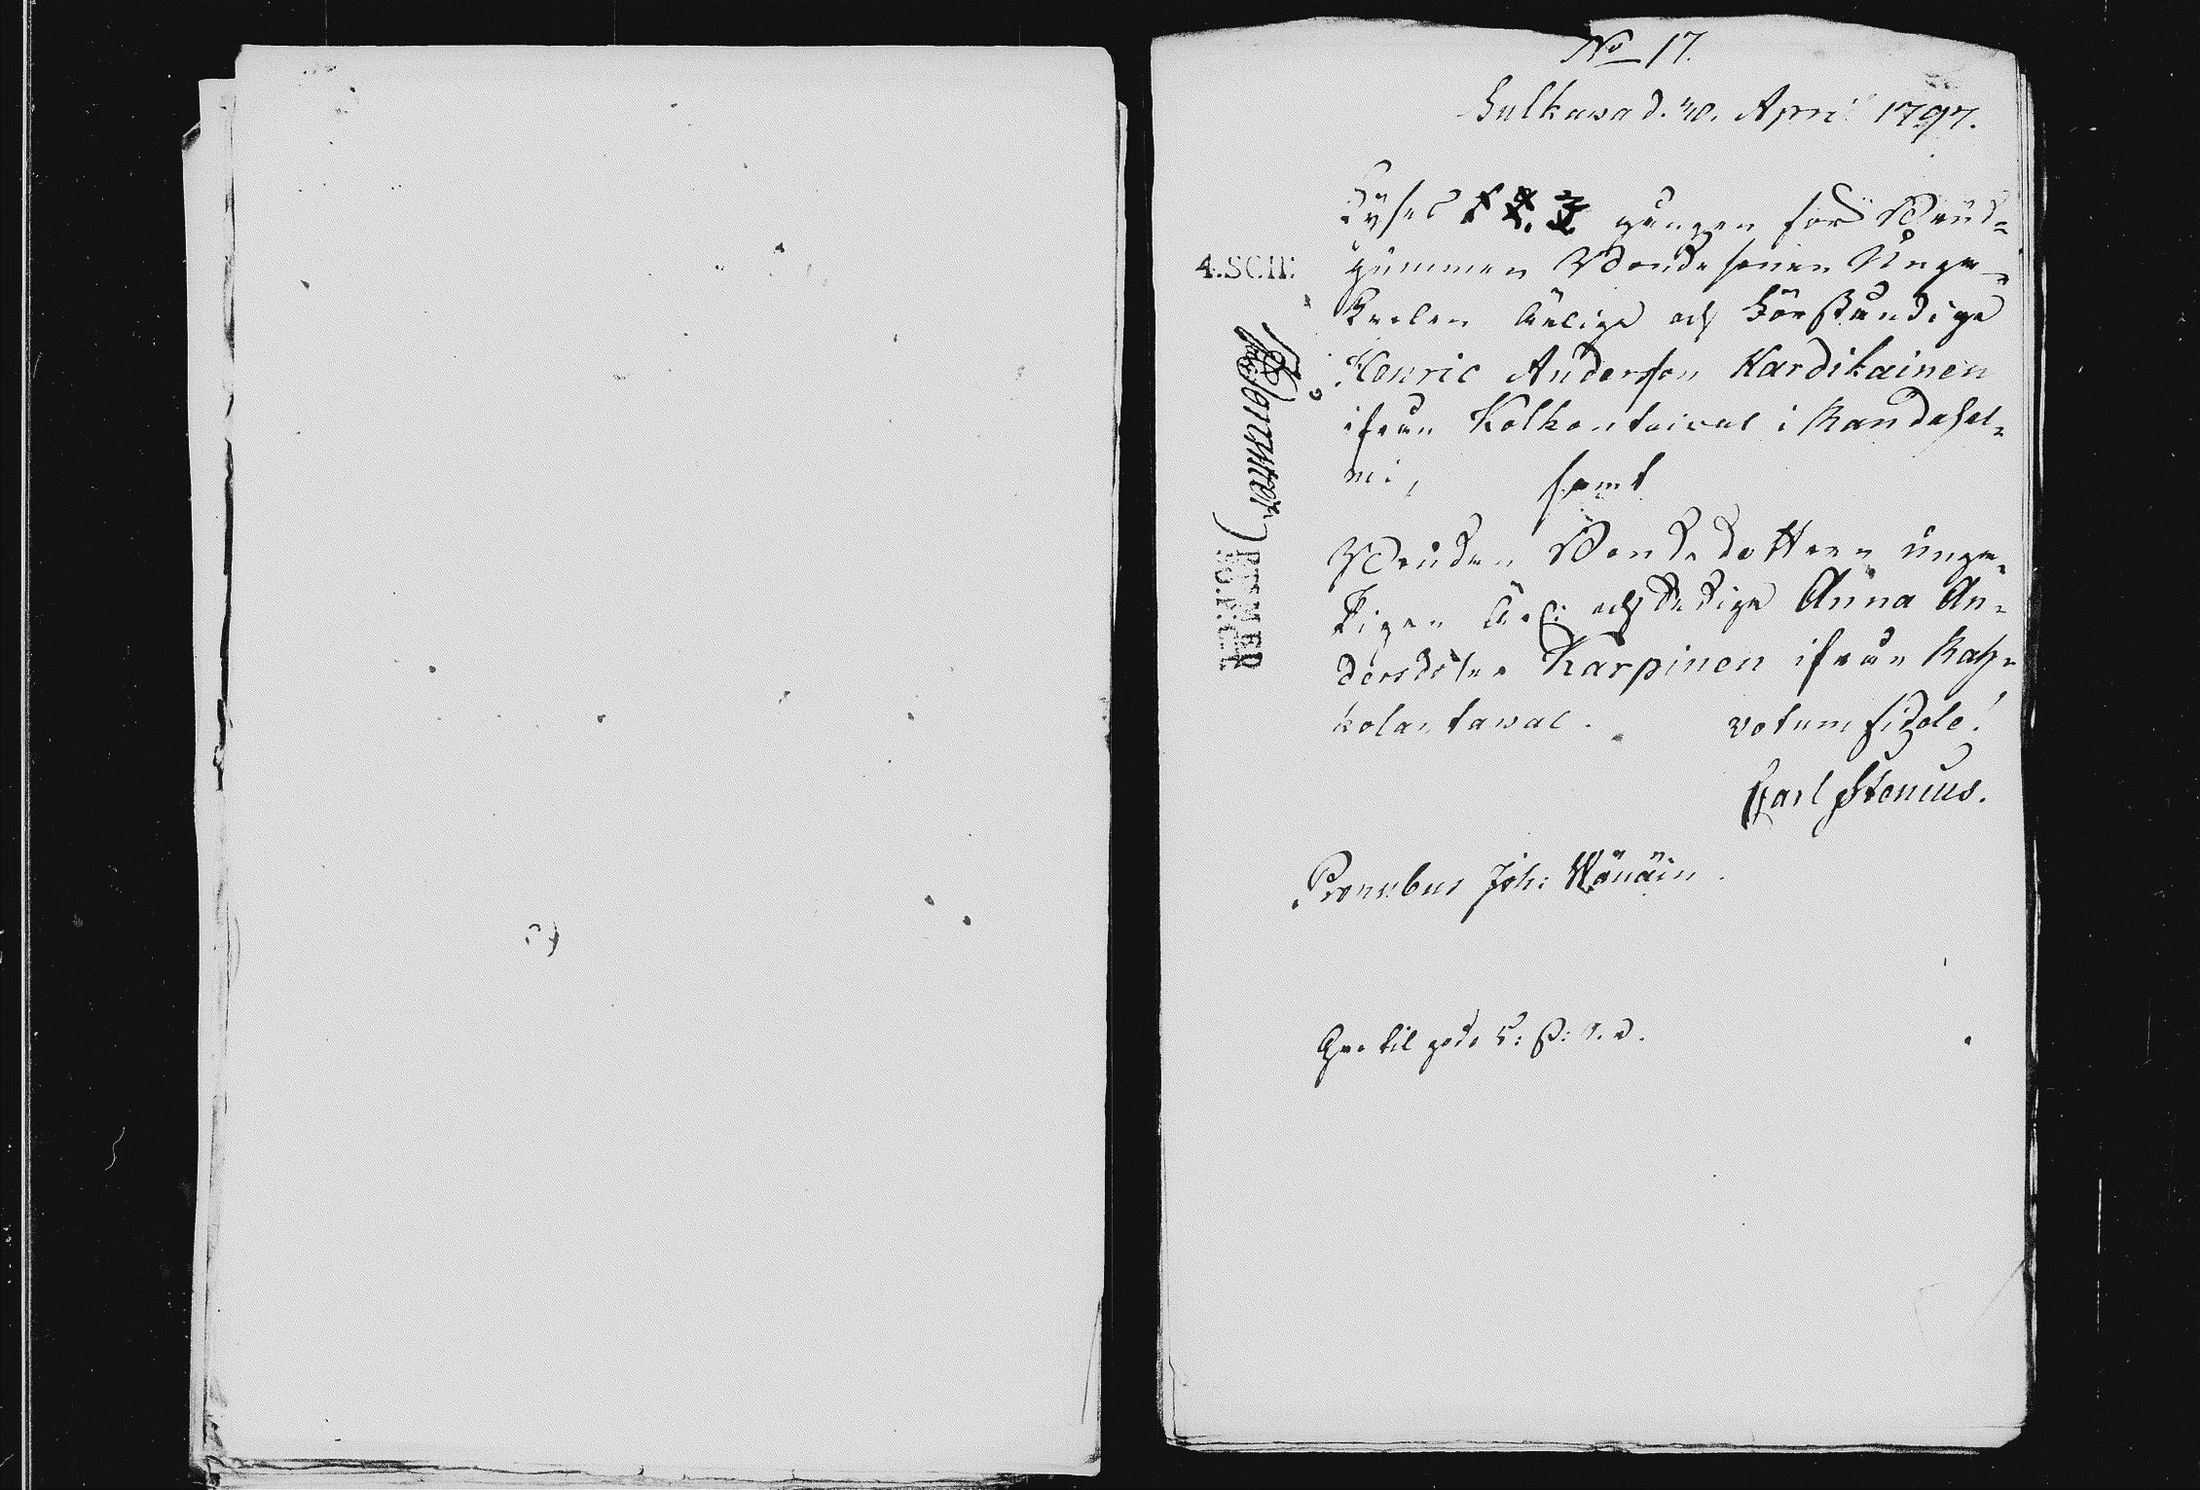 No 17.
Sulkava d. 30. April 1797.
Lyses 1 2. 3. gången för Brud-
4.SCH:
gummen Bondesonen Unge-
Karlen Ärlige och Förståndige
Henric Andersson Kardikainen
ifrån Kolkontaival i Randasal-
mi, samt
Bruden Bondedottren unga-
Pigan Ärl: och Dydige Anna An-
dersdoter Karpinen ifrån Kaþ-
kolantaival. votum fidele!
Carl Stenius.
Pronubus Joh: Wänäin.